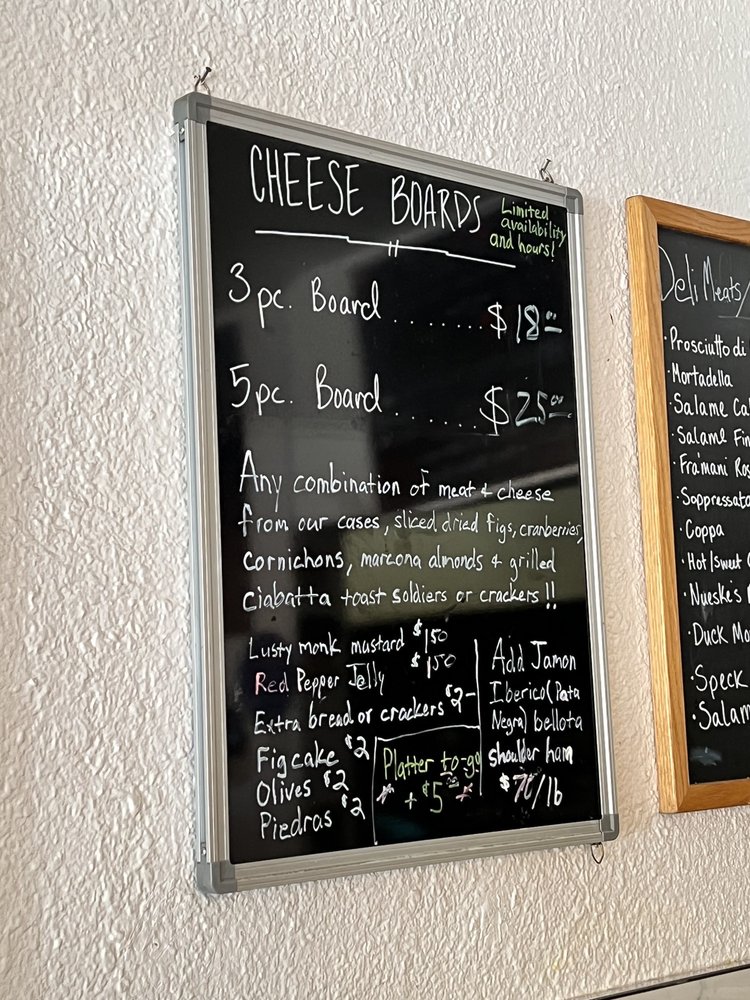 CHEESE BOARDS
Limited
availability
and hours!
3 pc. Board ........ $18.00
5 pc. Board ....... $25.00
Any combination of meat & cheese
from our cases, sliced dried figs, cranberries,
cornichons, marcona almonds & grilled
ciabatta toast soldiers or crackers!!
Lusty monk mustard $1.50
Red Pepper Jelly $1.50
Extra bread or crackers $2-
Fig cake $2
Olives $2
Piedras $2
Platter to-go
* + $5.00 *
Add Jamon
Iberico (Pata
Negra) bellota
shoulder ham
/lb
Deli Meats/
· Prosciutto di
· Mortadella
· Salame
· Salame
· Fra'mani
· Soppressata
· Coppa
· Hot/Sweet
· Nueske's
· Duck
· Speck
· Salam